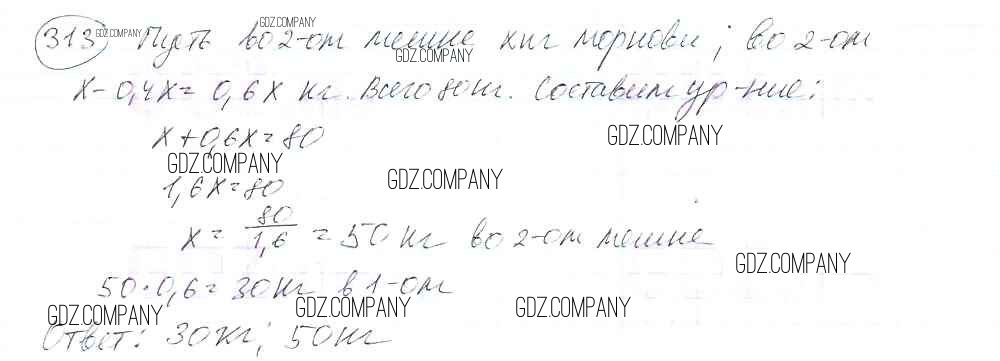 313 Пусть во 2-ом мешке x кг моркови; во 2-ом
x - 0,4x = 0,6x кг. Всего 80 кг. Составим ур-ние:
x + 0,6x = 80
1,6x = 80
x = 80/1,6 = 50 кг во 2-ом мешке
50·0,6 = 30 кг в 1-ом
Ответ: 30 кг; 50 кг
GDZ.COMPANY
GDZ.COMPANY
GDZ.COMPANY
GDZ.COMPANY
GDZ.COMPANY
GDZ.COMPANY
GDZ.COMPANY
GDZ.COMPANY
GDZ.COMPANY
GDZ.COMPANY